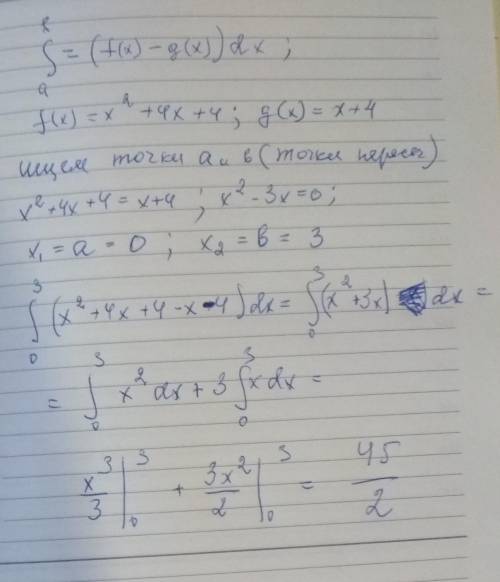 ∫ₐᵇ = (f(x) - g(x)) dx ;
f(x) = x² + 4x + 4 ; g(x) = x + 4
ищем точки a и b (точки пересеч)
x² + 4x + 4 = x + 4 ; x² - 3x = 0 ;
x₁ = a = 0 ; x₂ = b = 3
∫₀³ (x² + 4x + 4 - x - 4) dx = ∫₀³ (x² + 3x) dx =
= ∫₀³ x² dx + 3 ∫₀³ x dx =
x³/3 |₀³ + 3x²/2 |₀³ = 45/2